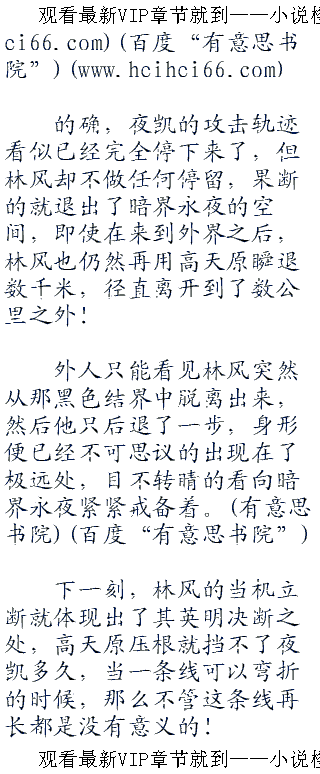 观看最新VIP章节就到——小说
ci66.com)(百度“有意思书
院”)(www.hcihci66.com)
的确，夜凯的攻击轨迹
看似已经完全停下来了，但
林风却不做任何停留，果断
的就退出了暗界永夜的空
间，即使在来到外界之后，
林风也仍然再用高天原瞬退
数千米，径直离开到了数公
里之外！
外人只能看见林风突然
从那黑色结界中脱离出来，
然后他只后退了一步，身形
便已经不可思议的出现在了
极远处，目不转睛的看向暗
界永夜紧紧戒备着。(有意思
书院)(百度“有意思书院”)
下一刻，林风的当机立
断就体现出了其英明决断之
处，高天原压根就挡不了夜
凯多久，当一条线可以弯折
的时候，那么不管这条线再
长都是没有意义的！
观看最新VIP章节就到——小说